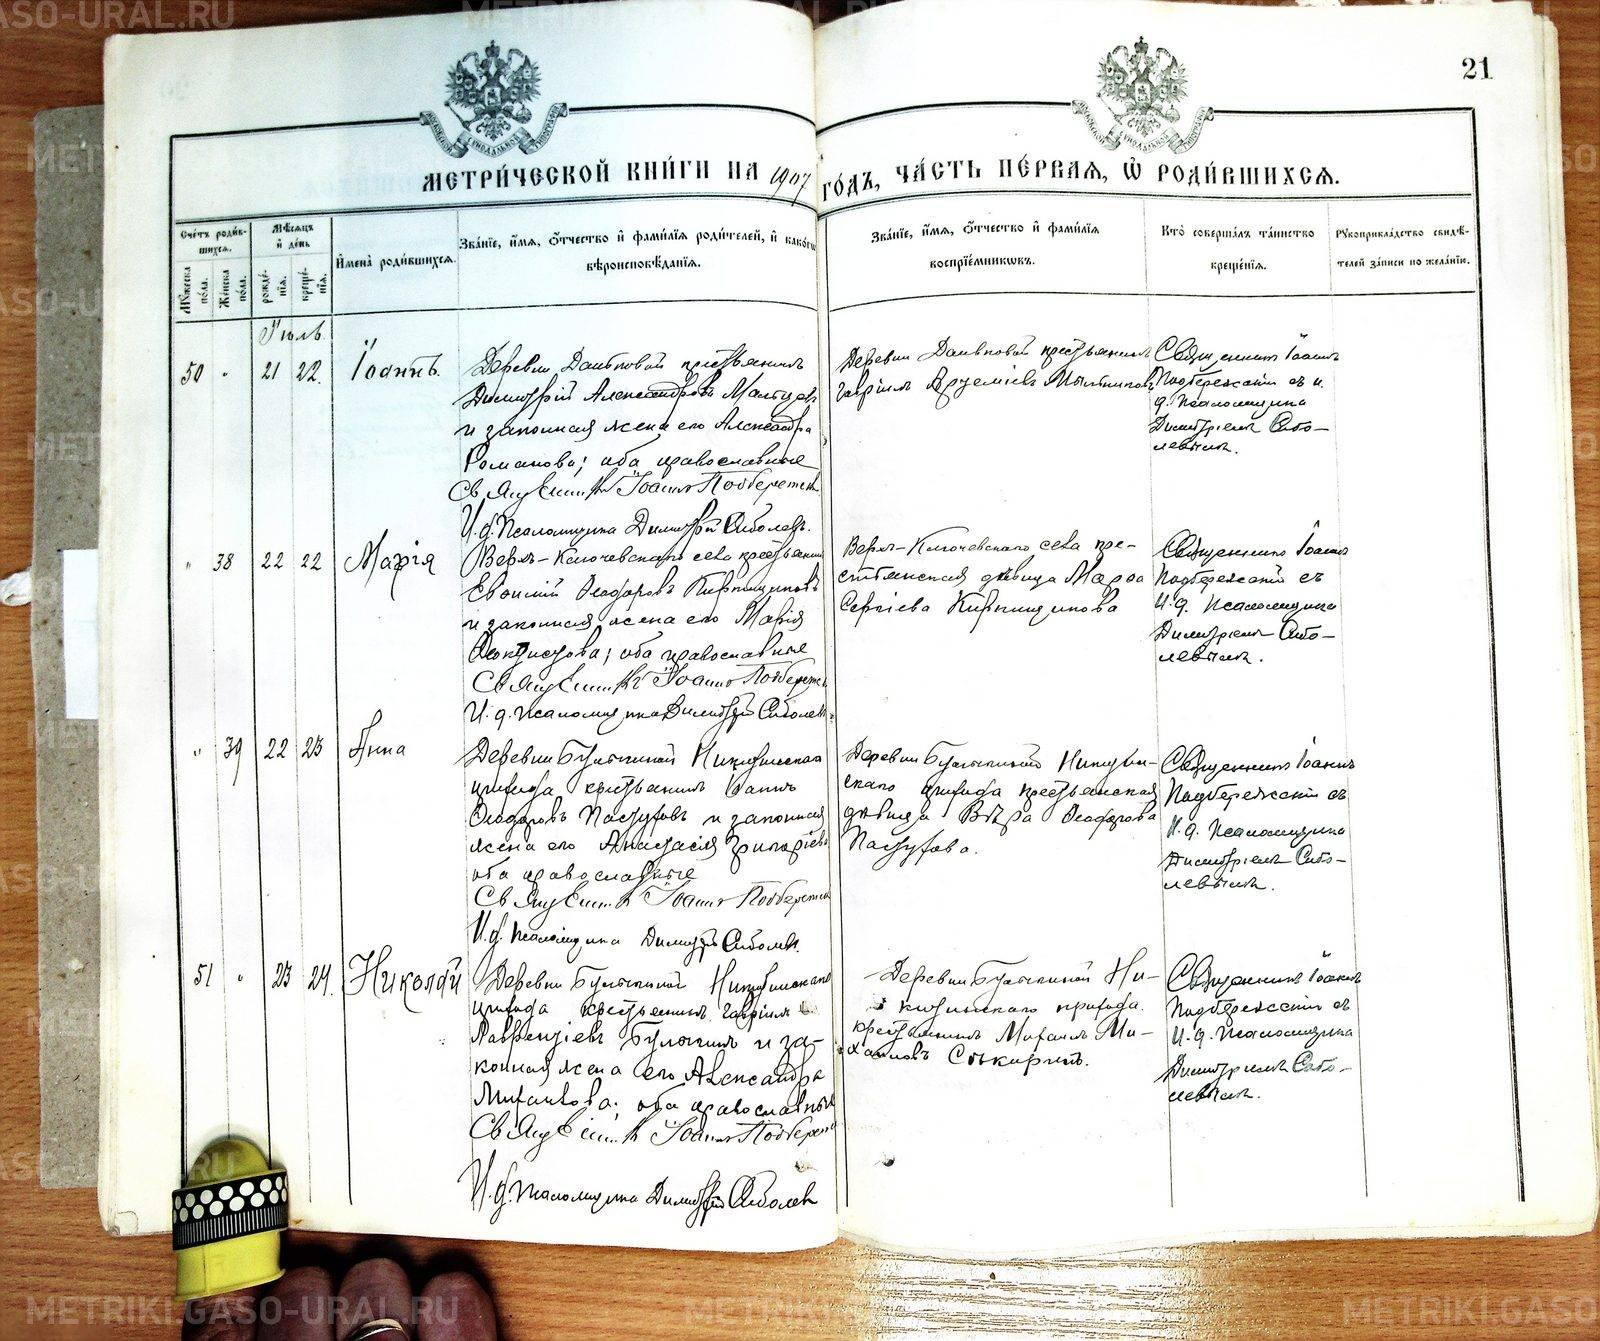 21
МЕТРИ́ЧЕСКОЙ КНИ́ГИ НА 1907 ГО́ДЪ, ЧА́СТЬ ПЕ́РВАЯ, Ѡ РОДИ́ВШИХСЯ.
Сче́тъ роди́вшихся.
Мѹжеска по́ла.
Же́нска по́ла.
Мѣ́сяцъ и де́нь
рожде́нїя.
креще́нїя.
И҆мена̀ роди́вшихся.
Зва́нїе, и҆́мя, ѻ҆́тчество и҆ фами́лїя роди́телей, и҆ како́гѡ
вѣроисповѣ́данїя.
Зва́нїе, и҆́мя, ѻ҆́тчество и҆ фами́лїя
воспрїе́мникѡвъ.
Кто̀ соверша́лъ та́инство
креще́нїя.
Рꙋкоприкла́дство свидѣ́-
телей за́писи по жела́нїю.
Іюль
50 " 21 22. Іоаннъ.
крестьянинъ
Димитрій Александровъ Мальцевъ
и законная жена его Александра
Романова; оба православные
Священникъ Іоаннъ Подбережскій
И. д. Псаломщика Димитрій Соболевъ.
крестьянинъ
Гавріилъ Артеміевъ Мыльниковъ
Священникъ Іоаннъ
Подбережскій съ и.
д. Псаломщика
Димитріемъ Собо-
левымъ.
" 38 22 22 Марія
Верхъ-Ключевскаго села крестьянинъ
Евфимій Ѳеодоровъ Кирпищиковъ
и законная жена его Марія
оба православные
Священникъ Іоаннъ Подбережскій
И. д. Псаломщика Димитрій Соболевъ.
Верхъ-Ключевскаго села кре-
стьянская дѣвица Мароа
Сергіева Кирпищикова
Священникъ Іоаннъ
Подбережскій съ
И. д. Псаломщика
Димитріемъ Собо-
левымъ.
" 39 22 23 Анна
Деревни Булычиной
прихода крестьянинъ
Ѳеодоровъ Пастуховъ и законная
жена его Анастасія Григоріева
оба православные
Священникъ Іоаннъ Подбережскій
И. д. Псаломщика Димитрій Соболевъ.
Деревни Булычиной
скаго прихода крестьянская
дѣвица Вѣра Ѳеодорова
Пастухова.
Священникъ Іоаннъ
Подбережскій съ
И. д. Псаломщика
Димитріемъ Собо-
левымъ.
51 " 23 24. Николай
Деревни Булычиной
прихода крестьянинъ Гавріилъ
Лаврентіевъ Булычинъ и за-
конная жена его Александра
Михаилова; оба православные
Священникъ Іоаннъ Подбережскій
И. д. Псаломщика Димитрій Соболевъ
Деревни Булычиной Ни-
прихода
крестьянинъ Михаилъ Ми-
хаиловъ
Священникъ Іоаннъ
Подбережскій съ
И. д. Псаломщика
Димитріемъ Собо-
левымъ.
METRIKI.GASO-URAL.RU